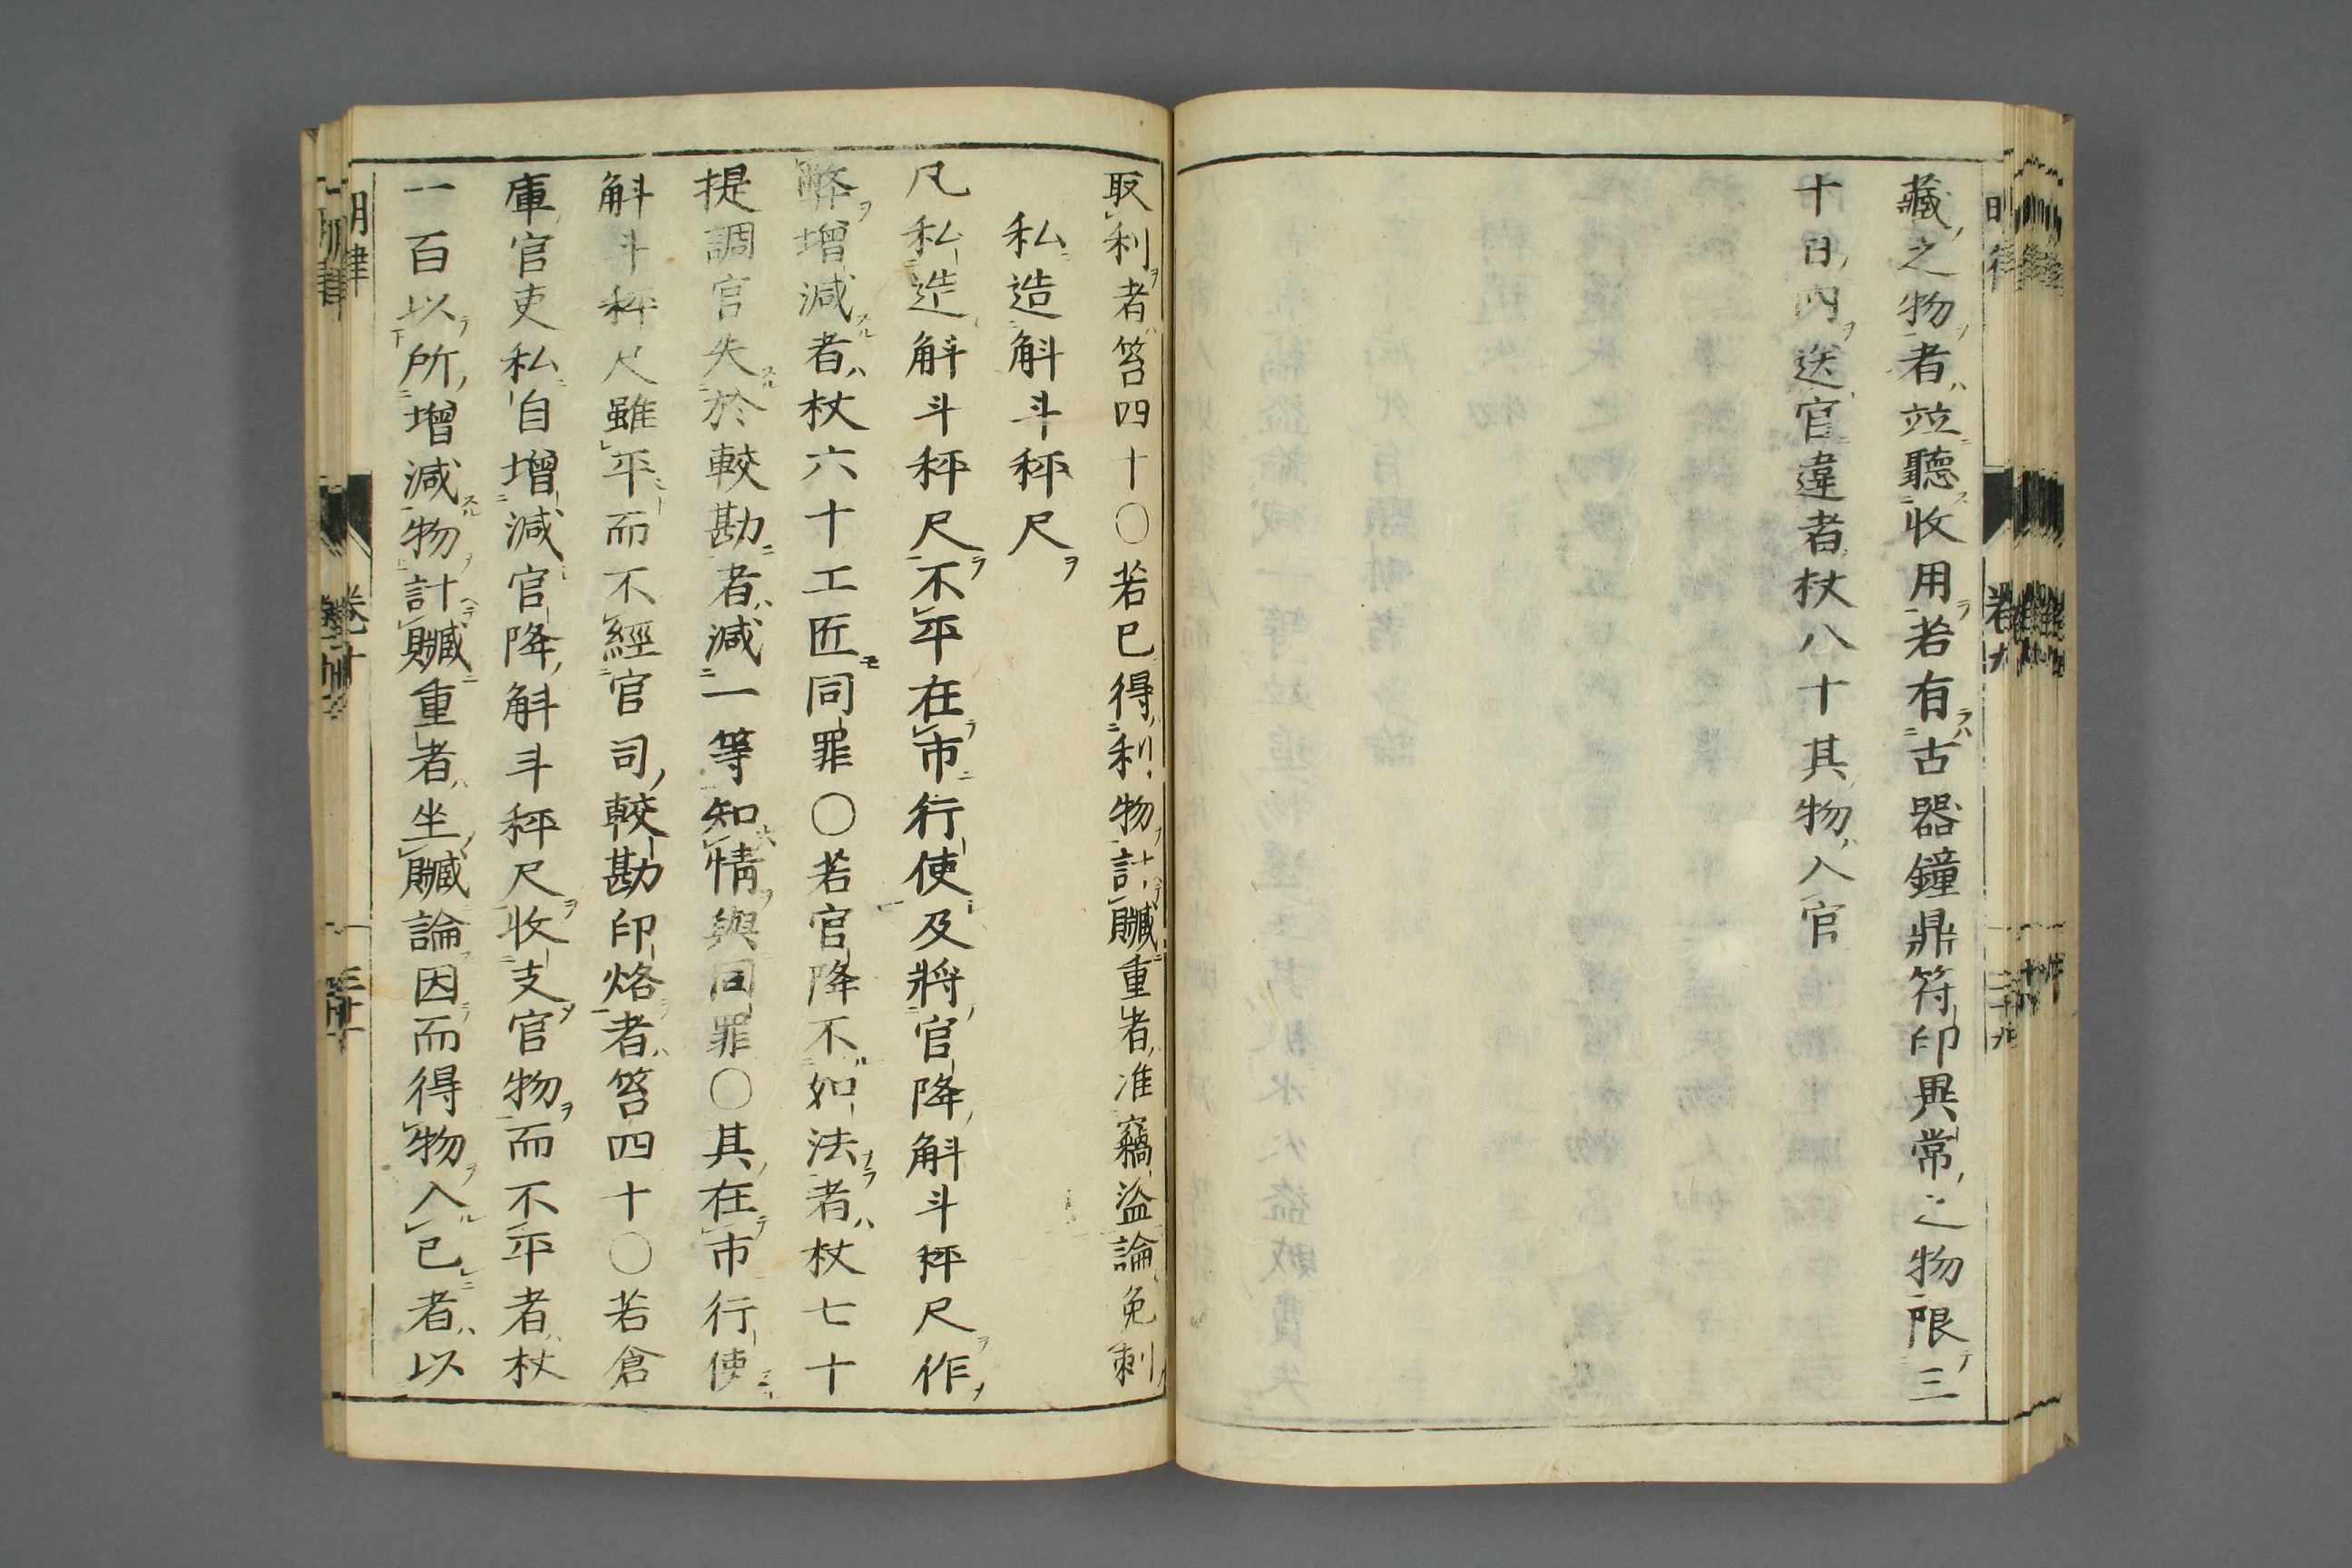 藏之物者竝聽收用若有古器鐘鼎符印異常之物限三
十日內送官違者杖八十其物入官
取利者笞四十○若已得利物計贓重者准竊盜論免刺
私造斛斗秤尺
凡私造斛斗秤尺不平在市行使及將官降斛斗秤尺作
弊增減者杖六十工匠同罪○若官降不如法者杖七十
提調官失於較勘者減一等知情與同罪○其在市行使
斛斗秤尺雖平而不經官司較勘印烙者笞四十○若倉
庫官吏私自增減官降斛斗秤尺收支官物而不平者杖
一百以所增減物計贓重者坐贓論因而得物入己者以